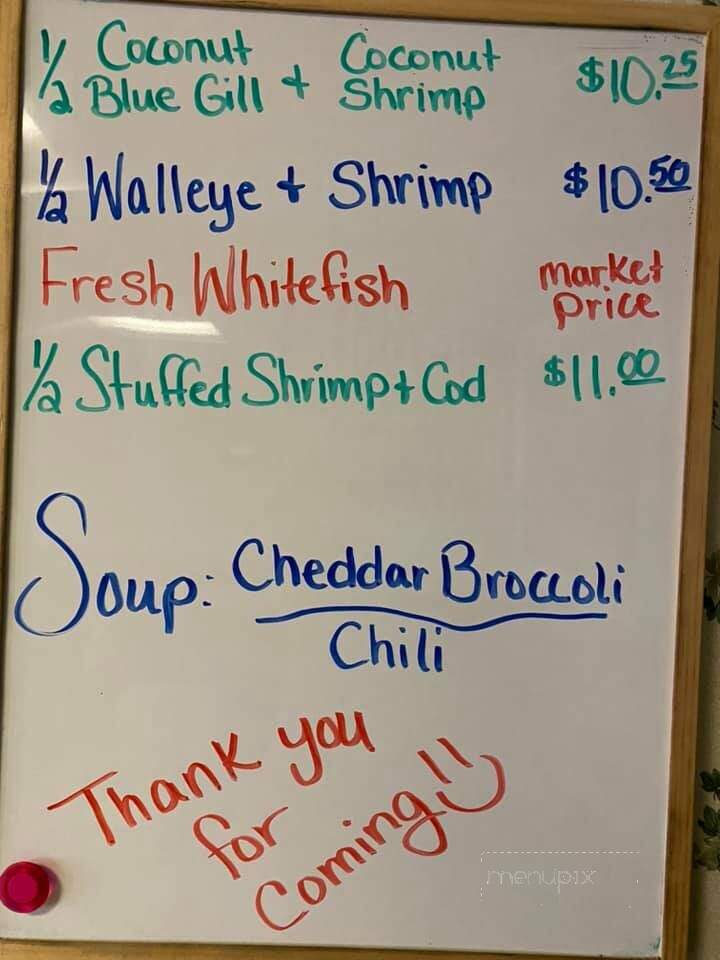 ½ Coconut Blue Gill + Coconut Shrimp $10.25
½ Walleye + Shrimp $10.50
Fresh Whitefish market price
½ Stuffed Shrimp + Cod $11.00
Soup: Cheddar Broccoli
Chili
Thank you
for
Coming!!
menupix